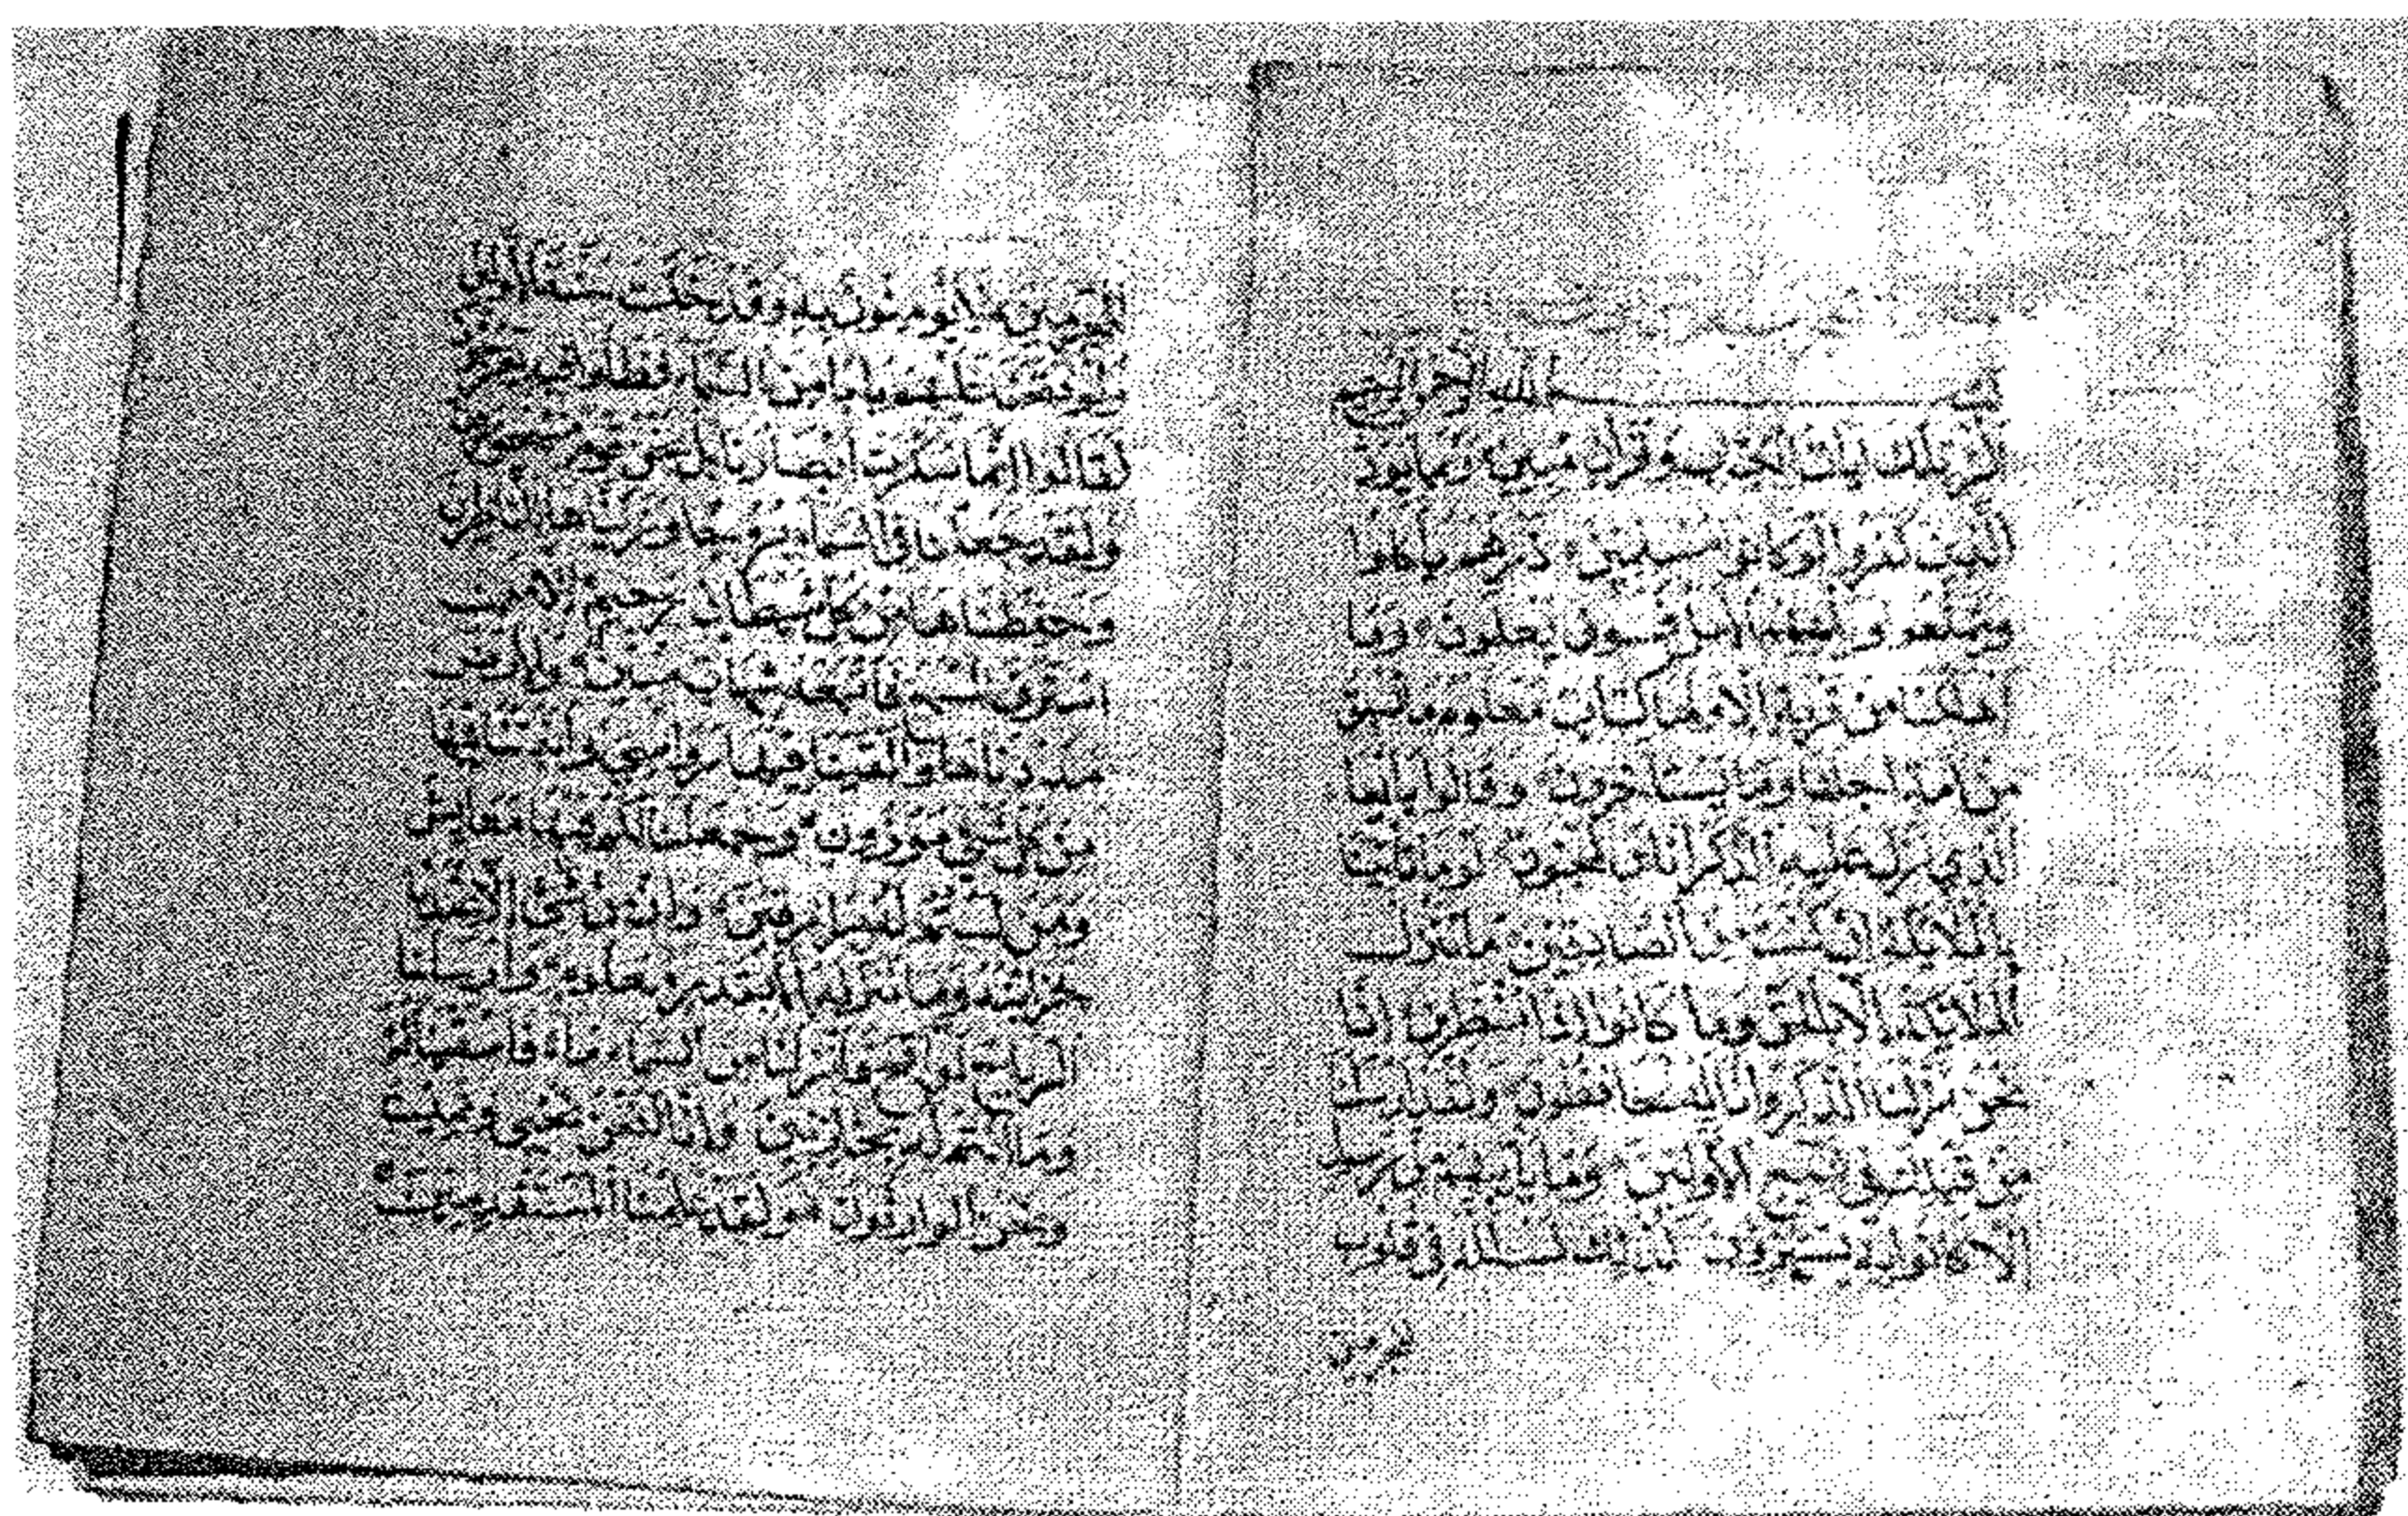 بسم الله الرحمن الرحيم
الر تلك ايات الكتاب وقران مبين ربما يود
الذين كفروا لو كانوا مسلمين ذرهم ياكلوا
ويتمتعوا ويلههم الامل فسوف يعلمون وما
اهلكنا من قرية الا ولها كتاب معلوم ما تسبق
من امة اجلها وما يستأخرون وقالوا يا ايها
الذي نزل عليه الذكر انك لمجنون لو ما تأتينا
بالملائكة ان كنت من الصادقين ما تنزل
الملائكة الا بالحق وما كانوا اذا منظرين انا
نحن نزلنا الذكر وانا له لحافظون ولقد ارسلنا
من قبلك في شيع الاولين وما يأتيهم من رسول
الا كانوا به يستهزؤن كذلك نسلكه في قلوب
المجرمين لا يؤمنون به وقد خلت سنة الاولين
ولو فتحنا عليهم بابا من السماء فظلوا فيه يعرجون
لقالوا انما سكرت ابصارنا بل نحن قوم مسحورون
ولقد جعلنا في السماء بروجا وزيناها للناظرين
وحفظناها من كل شيطان رجيم الا من
استرق السمع فاتبعه شهاب مبين والارض
مددناها والقينا فيها رواسي وانبتنا فيها
من كل شئ موزون وجعلنا لكم فيها معايش
ومن لستم له برازقين وان من شئ الا عندنا
خزائنه وما ننزله الا بقدر معلوم وارسلنا
الرياح لواقح فانزلنا من السماء ماء فاسقيناكموه
وما انتم له بخازنين وانا لنحن نحيي ونميت
ونحن الوارثون ولقد علمنا المستقدمين